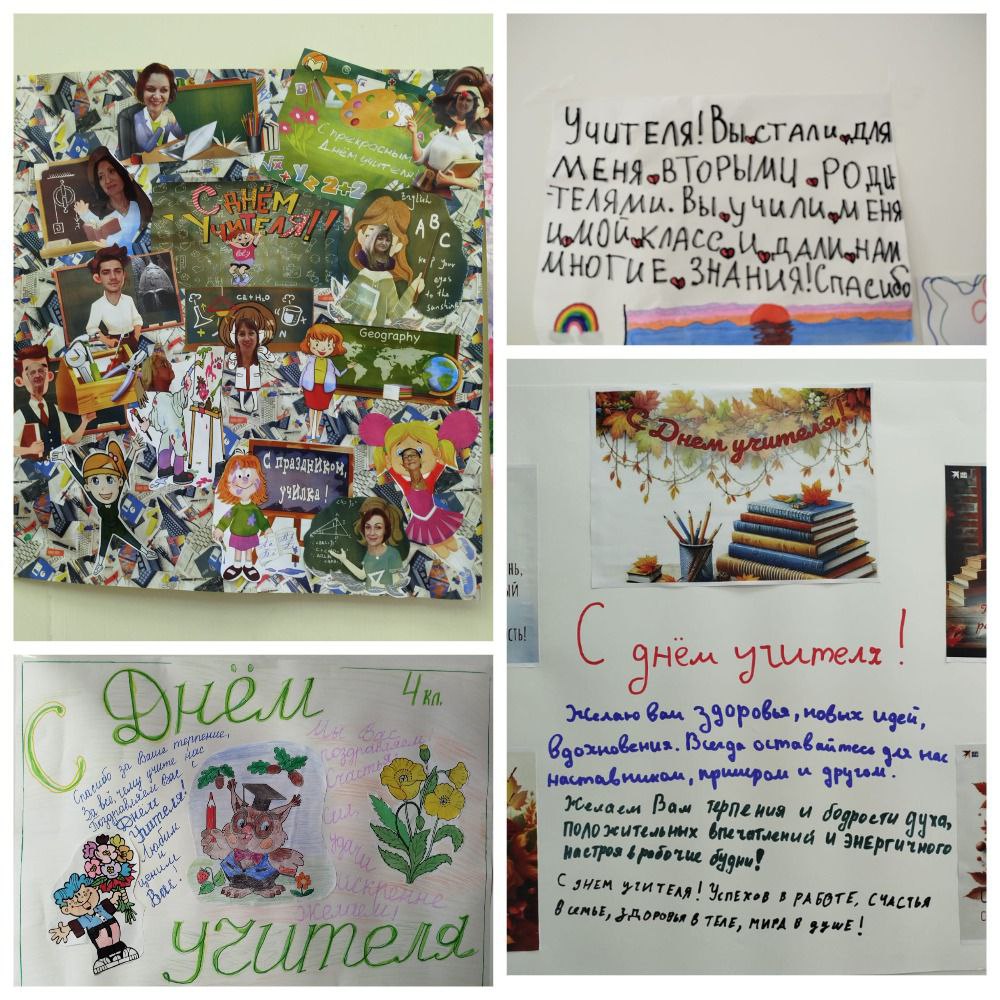 С прекрасным
Днём учителя!
√x + y ≥ 2+2
С ДНЁМ
УЧИТЕЛЯ!!
English
A B C
keep your
eyes
to the
sunshine
Ca + H₂O
Geography
С ПРАЗДНИКОМ,
УЧИЛКА!
УЧИТЕЛЯ! ВЫ СТАЛИ ДЛЯ
МЕНЯ ВТОРЫМИ РОДИ
ТЕЛЯМИ. ВЫ УЧИЛИ МЕНЯ
И МОЙ КЛАСС И ДАЛИ НАМ
МНОГИЕ ЗНАНИЯ! СПАСИБО
С Днём
4 кл.
учителя
Спасибо за Ваше терпение,
За всё чему учите нас
Поздравляем Вас с
Днём
Учителя!
Любим
и
ценим
Вас!
Мы Вас
поздравляем!
Счастья
Сил,
удачи
искренне
желаем!
С Днем учителя!
С днём учителя!
Желаю вам здоровья, новых идей,
вдохновения. Всегда оставайтесь для нас
наставником, примером и другом.
Желаем Вам терпения и бодрости духа,
положительных впечатлений и энергичного
настроя в рабочие будни!
С днем учителя! Успехов в работе, счастья
в семье, здоровья в теле, мира в душе!